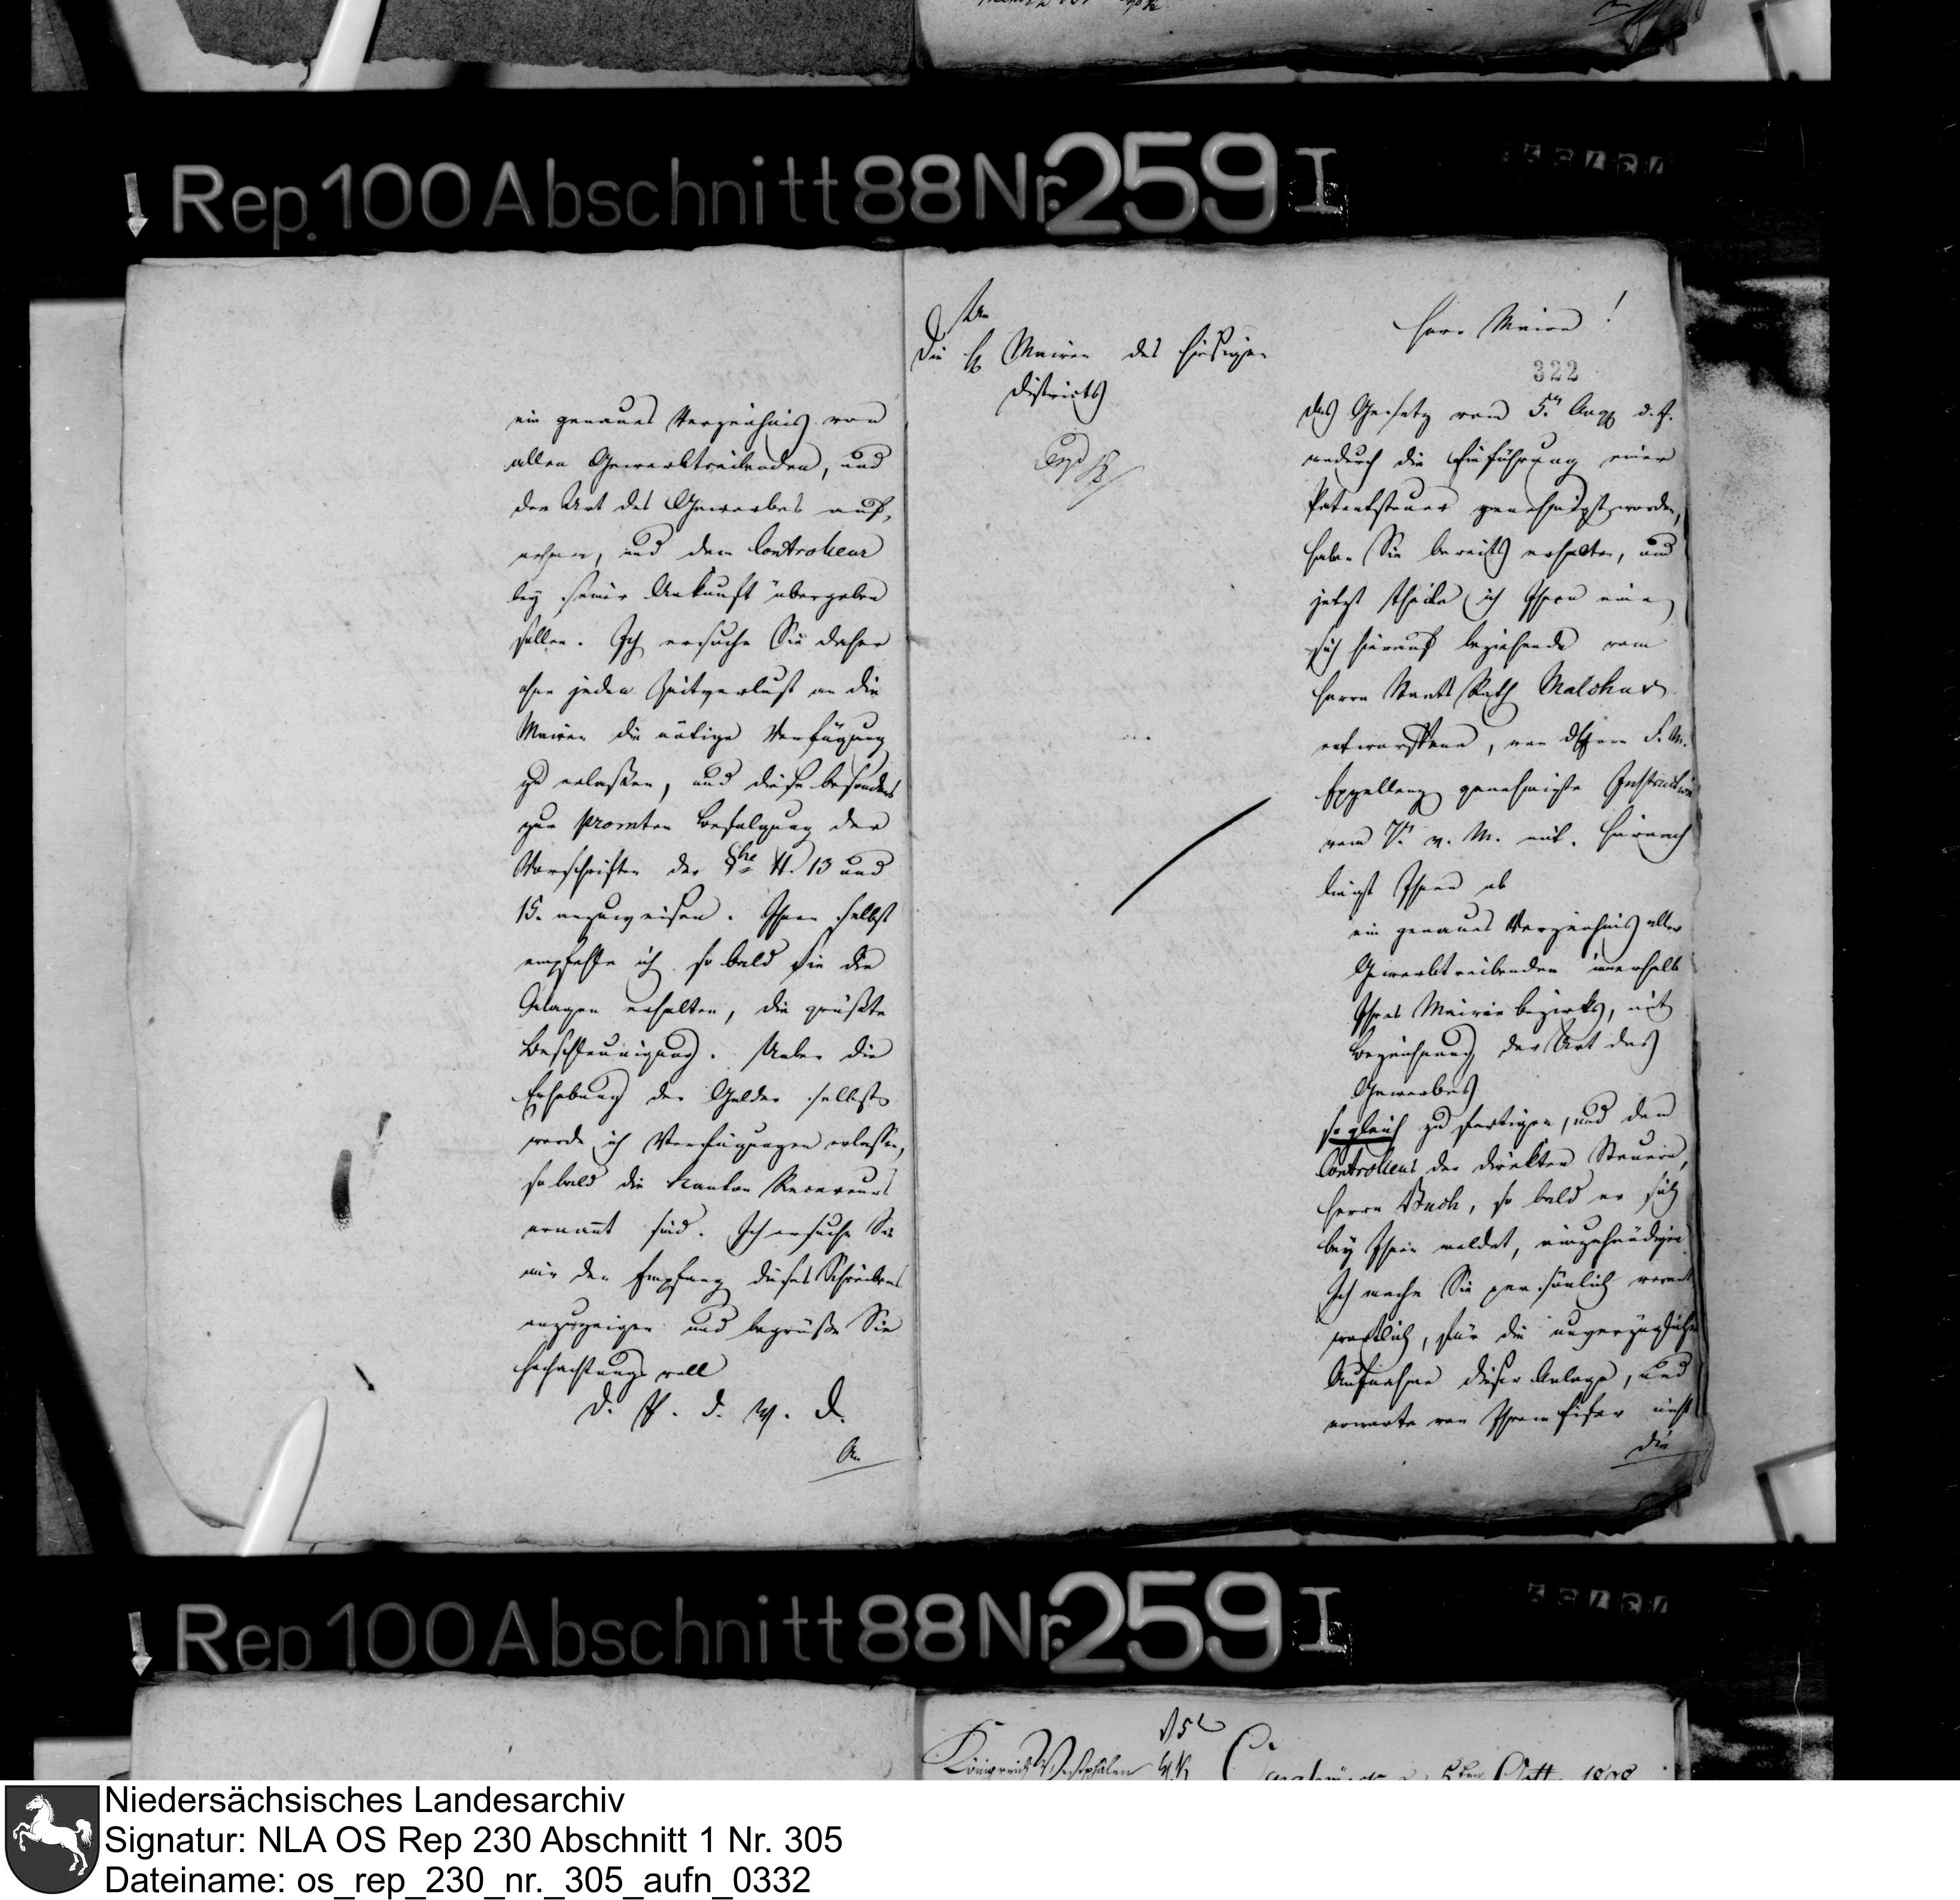 Rep. 100 Abschnitt 88 Nr. 259 I
ein genaues Verzeichnis von
allen Gewerbtreibenden, und
der Art des Gewerbes auf,
nehmen, und dem Controlleur
bey seiner Ankunft übergeben
sollen. Ich ersuche Sie daher
ohne jeden Zeitverlust an die
Mairen die nötige Verfügung
zu erlaßen, und diese besonders
zur promten Befolgung der
Vorschriften der §he 11. 13 und
15. anzuweisen. Ihnen selbst
empfehle ich so bald sie die
Anlagen erhalten, die größte
Beschleunigung. Ueber die
Erhebung der Gelder selbst
werde ich Verfügungen erlassen,
so bald die Kanton Receveurs
ernannt sind. Ich ersuche Sie
mir den Empfang dieses Schreibens
anzuzeigen und begrüße Sie
hochachtungsvoll
D. P. d. W. D.
An
An
Die H Mairen des hiesigen
Districts
Herr Maire!
322
Das Gesetz vom 5n Aug d. J.
wodurch die Einführung einer
Patentsteuer genehmigt worden,
haben Sie bereits erhalten, und
jetzt theile ich Ihnen eine
sich hierauf beziehende vom
Herrn Staats Rath Malchus
entworffene, von des Herrn F. M.
Exzellenz genehmigte Instruction
vom 7n v. M. mit. Hiernach
liegt Ihnen ob
ein genaues Verzeichnis aller
Gewerbtreibenden innerhalb
Ihres Mairiebezirks, mit
Bezeichnung der Art des
Gewerbes
sogleich zu fertigen, und dem
Controlleur der direkten Steuern,
Herrn Buch, so bald er sich
bey Ihnen meldet, einzuhändigen
Ich mache Sie persönlich verant
wortlich, für die unverzügliche
Aufnahme dieser Anlage, und
erwarte von Ihrem Eifer nicht
die
Rep 100 Abschnitt 88 Nr. 259 I
Königreich Westphalen
5ten Octb. 1808
Niedersächsisches Landesarchiv
Signatur: NLA OS Rep 230 Abschnitt 1 Nr. 305
Dateiname: os_rep_230_nr._305_aufn_0332